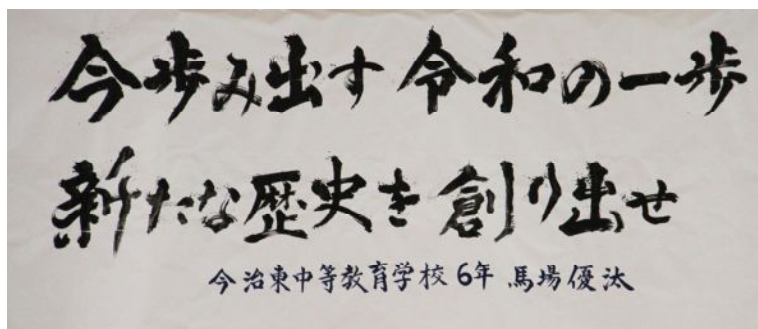 今歩み出す 令和の一歩
新たな歴史を 創り出せ
今治東中等教育学校 6年 馬場優汰